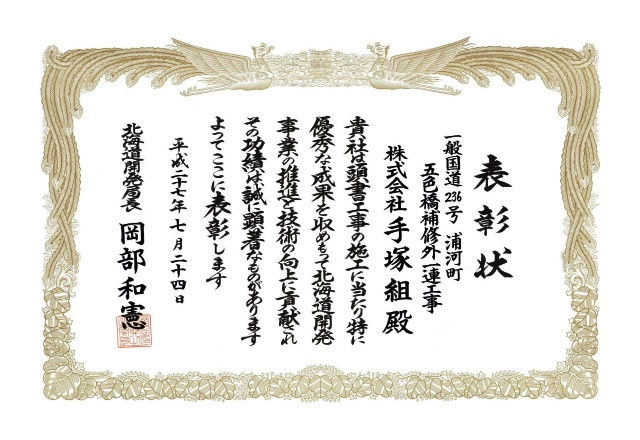 表彰状
一般国道236号 浦河町
五色橋補修外一連工事
株式会社 手塚組 殿
貴社は頭書工事の施工に当たり特に
優秀な成果を収めもって北海道開発
事業の推進と技術の向上に貢献され
その功績は誠に顕著なものがあります
よってここに表彰します
平成二十七年七月二十四日
北海道開発局長 岡部和憲